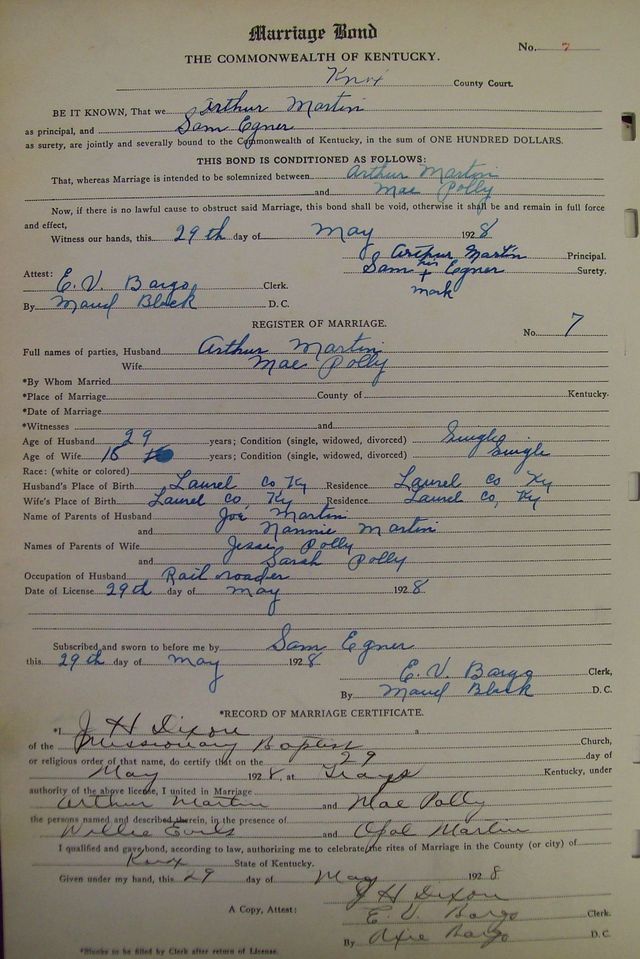 Marriage Bond
No. 7
THE COMMONWEALTH OF KENTUCKY.
Knox County Court.
BE IT KNOWN, That we Arthur Martin
as principal, and Sam Egner
as surety, are jointly and severally bound to the Commonwealth of Kentucky, in the sum of ONE HUNDRED DOLLARS.
THIS BOND IS CONDITIONED AS FOLLOWS:
That, whereas Marriage is intended to be solemnized between Arthur Martin
and Mae Polly
Now, if there is no lawful cause to obstruct said Marriage, this bond shall be void, otherwise it shall be and remain in full force
and effect,
Witness our hands, this 29th day of May 1928
Arthur Martin Principal.
Attest: Sam his Egner Surety.
E. V. Bargo Clerk. + mark
By Maud Black D. C.
REGISTER OF MARRIAGE.
No. 7
Full names of parties, Husband Arthur Martin
Wife Mae Polly
*By Whom Married
*Place of Marriage County of Kentucky.
*Date of Marriage
*Witnesses and
Age of Husband 29 years; Condition (single, widowed, divorced) Single
Age of Wife 18 years; Condition (single, widowed, divorced) Single
Race: (white or colored)
Husband's Place of Birth Laurel Co Ky Residence Laurel Co Ky
Wife's Place of Birth Laurel Co, Ky Residence Laurel Co, Ky
Name of Parents of Husband Joe Martin
and Nannie Martin
Names of Parents of Wife Jesse Polly
and Sarah Polly
Occupation of Husband Rail roader
Date of License 29th day of May 1928
Subscribed and sworn to before me by Sam Egner
this 29th day of May 1928
E. V. Bargo Clerk,
By Maud Black D. C.
*RECORD OF MARRIAGE CERTIFICATE.
*I J H Dixon a
of the Missionary Baptist Church,
or religious order of that name, do certify that on the 29 day of
May 1928, at Grays Kentucky, under
authority of the above license, I united in Marriage
Arthur Martin and Mae Polly
the persons named and described therein, in the presence of
Willie and Opal Martin
I qualified and gave bond, according to law, authorizing me to celebrate the rites of Marriage in the County (or city) of
Knox State of Kentucky.
Given under my hand, this 29 day of May 1928
J H Dixon
A Copy, Attest: E. V. Bargo Clerk.
By Bargo D. C.
*Blanks to be filled by Clerk after return of License.